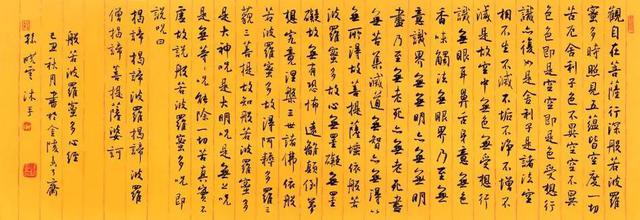 觀自在菩薩行深般若波羅
蜜多時照見五蘊皆空度一切
苦厄舍利子色不異空空不異
色色即是空空即是色受想行
識亦復如是舍利子是諸法空
相不生不滅不垢不淨不增不
減是故空中無色無受想行
識無眼耳鼻舌身意無色聲
香味觸法無眼界乃至無
意識界無無明亦無無明
盡乃至無老死亦無老死盡
無苦集滅道無智亦無得以
無所得故菩提薩埵依般若
波羅蜜多故心無罣礙無罣
礙故無有恐怖遠離顛倒夢
想究竟涅槃三世諸佛依般
若波羅蜜多故得阿耨多羅三
藐三菩提故知般若波羅蜜多
是大神咒是大明咒是無上咒
是無等等咒能除一切苦真實不
虛故說般若波羅蜜多咒即
說咒曰
揭諦揭諦波羅揭諦波羅
僧揭諦菩提薩婆訶
般若波羅蜜多心經
己丑秋月書於金陵
孫曉雲沐手